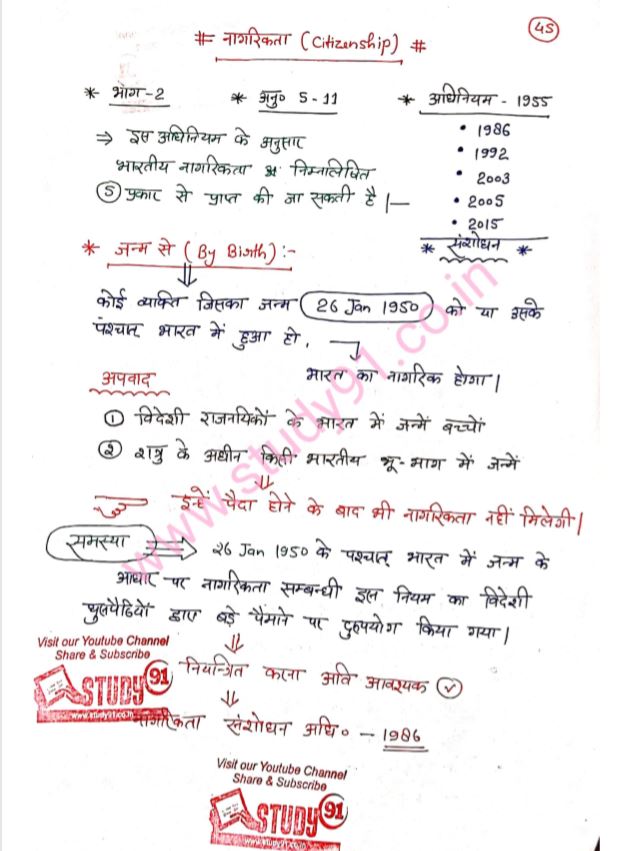 45
# नागरिकता (Citizenship) #
* भाग-2 * अनु० 5-11 * अधिनियम - 1955
⇒ इस अधिनियम के अनुसार
भारतीय नागरिकता निम्नलिखित
5 प्रकार से प्राप्त की जा सकती है।—
• 1986
• 1992
• 2003
• 2005
• 2015
* संशोधन *
* जन्म से (By Birth) :-
कोई व्यक्ति जिसका जन्म 26 Jan 1950 को या उसके
पश्चात् भारत में हुआ हो,
भारत का नागरिक होगा।
अपवाद
① विदेशी राजनयिकों के भारत में जन्में बच्चों
② शत्रु के अधीन किसी भारतीय भू-भाग में जन्में
इन्हें पैदा होने के बाद भी नागरिकता नहीं मिलेगी।
समस्या ⇒ 26 Jan 1950 के पश्चात् भारत में जन्म के
आधार पर नागरिकता सम्बन्धी इस नियम का विदेशी
घुसपैठियों द्वारा बड़े पैमाने पर दुरुपयोग किया गया।
नियन्त्रित करना अति आवश्यक
नागरिकता संशोधन अधि० - 1986
www.study91.co.in
Visit our Youtube Channel
Share & Subscribe
STUDY 91
www.study91.co.in
Visit our Youtube Channel
Share & Subscribe
STUDY 91
www.study91.co.in